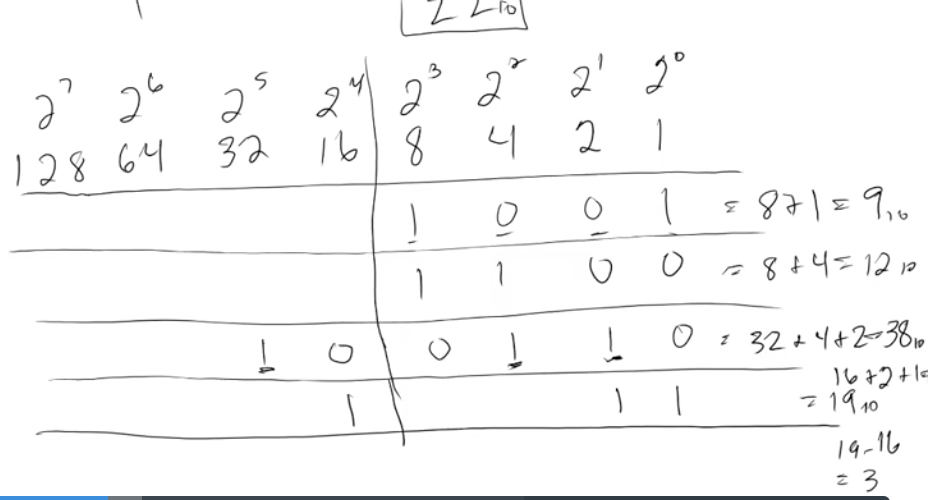 22₁₀
2⁷ 2⁶ 2⁵ 2⁴ 2³ 2² 2¹ 2⁰
128 64 32 16 8 4 2 1
1 0 0 1 = 8+1 = 9₁₀
1 1 0 0 = 8+4 = 12₁₀
1 0 0 1 1 0 = 32+4+2=38₁₀
16+2+1=
1 1 1 = 19₁₀
19-16
= 3